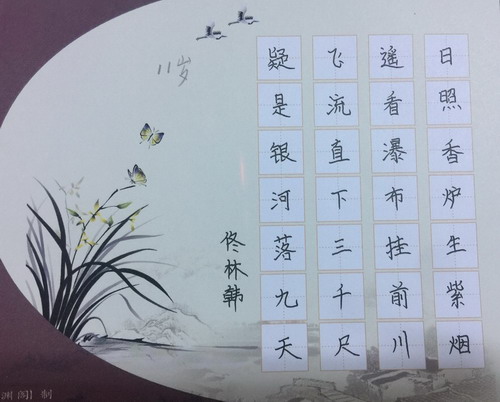 日照香炉生紫烟
遥看瀑布挂前川
飞流直下三千尺
疑是银河落九天
佟林韩
11岁
渊阁制